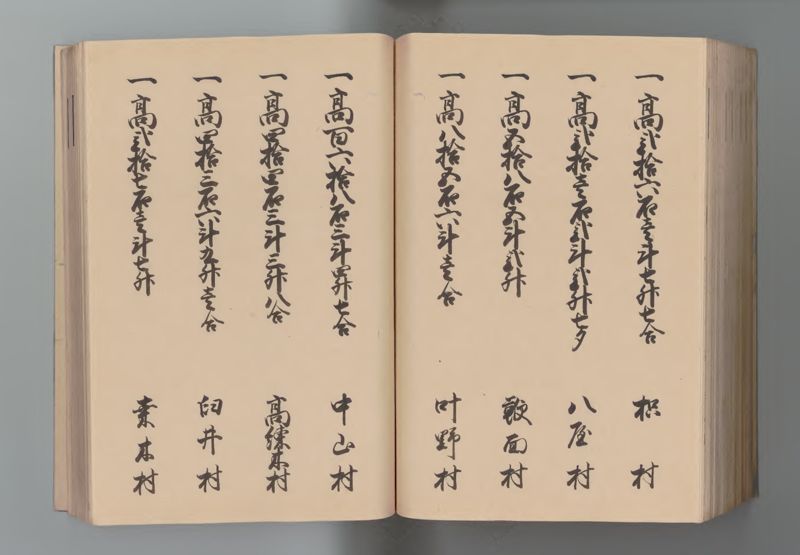 一高弐拾六石壱斗七升七合 枳村
一高弐拾壱石弐斗弐升七夕 八屋村
一高五拾八石五斗弐升 鞁面村
一高八拾五石六斗壱合 叶野村
一高百六拾八石三斗四升七合 中山村
一高四拾四石三斗三升八合 高練木村
一高四拾三石六斗九升壱合 臼井村
一高弐拾七石壱斗七升 木村